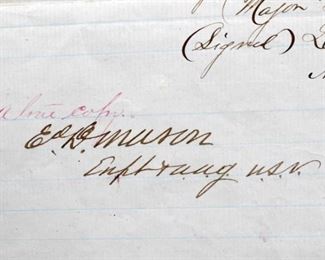 (Major
(Signed)
a true copy.
Ed B. Mason
Capt & a.a.g. U.S.V.